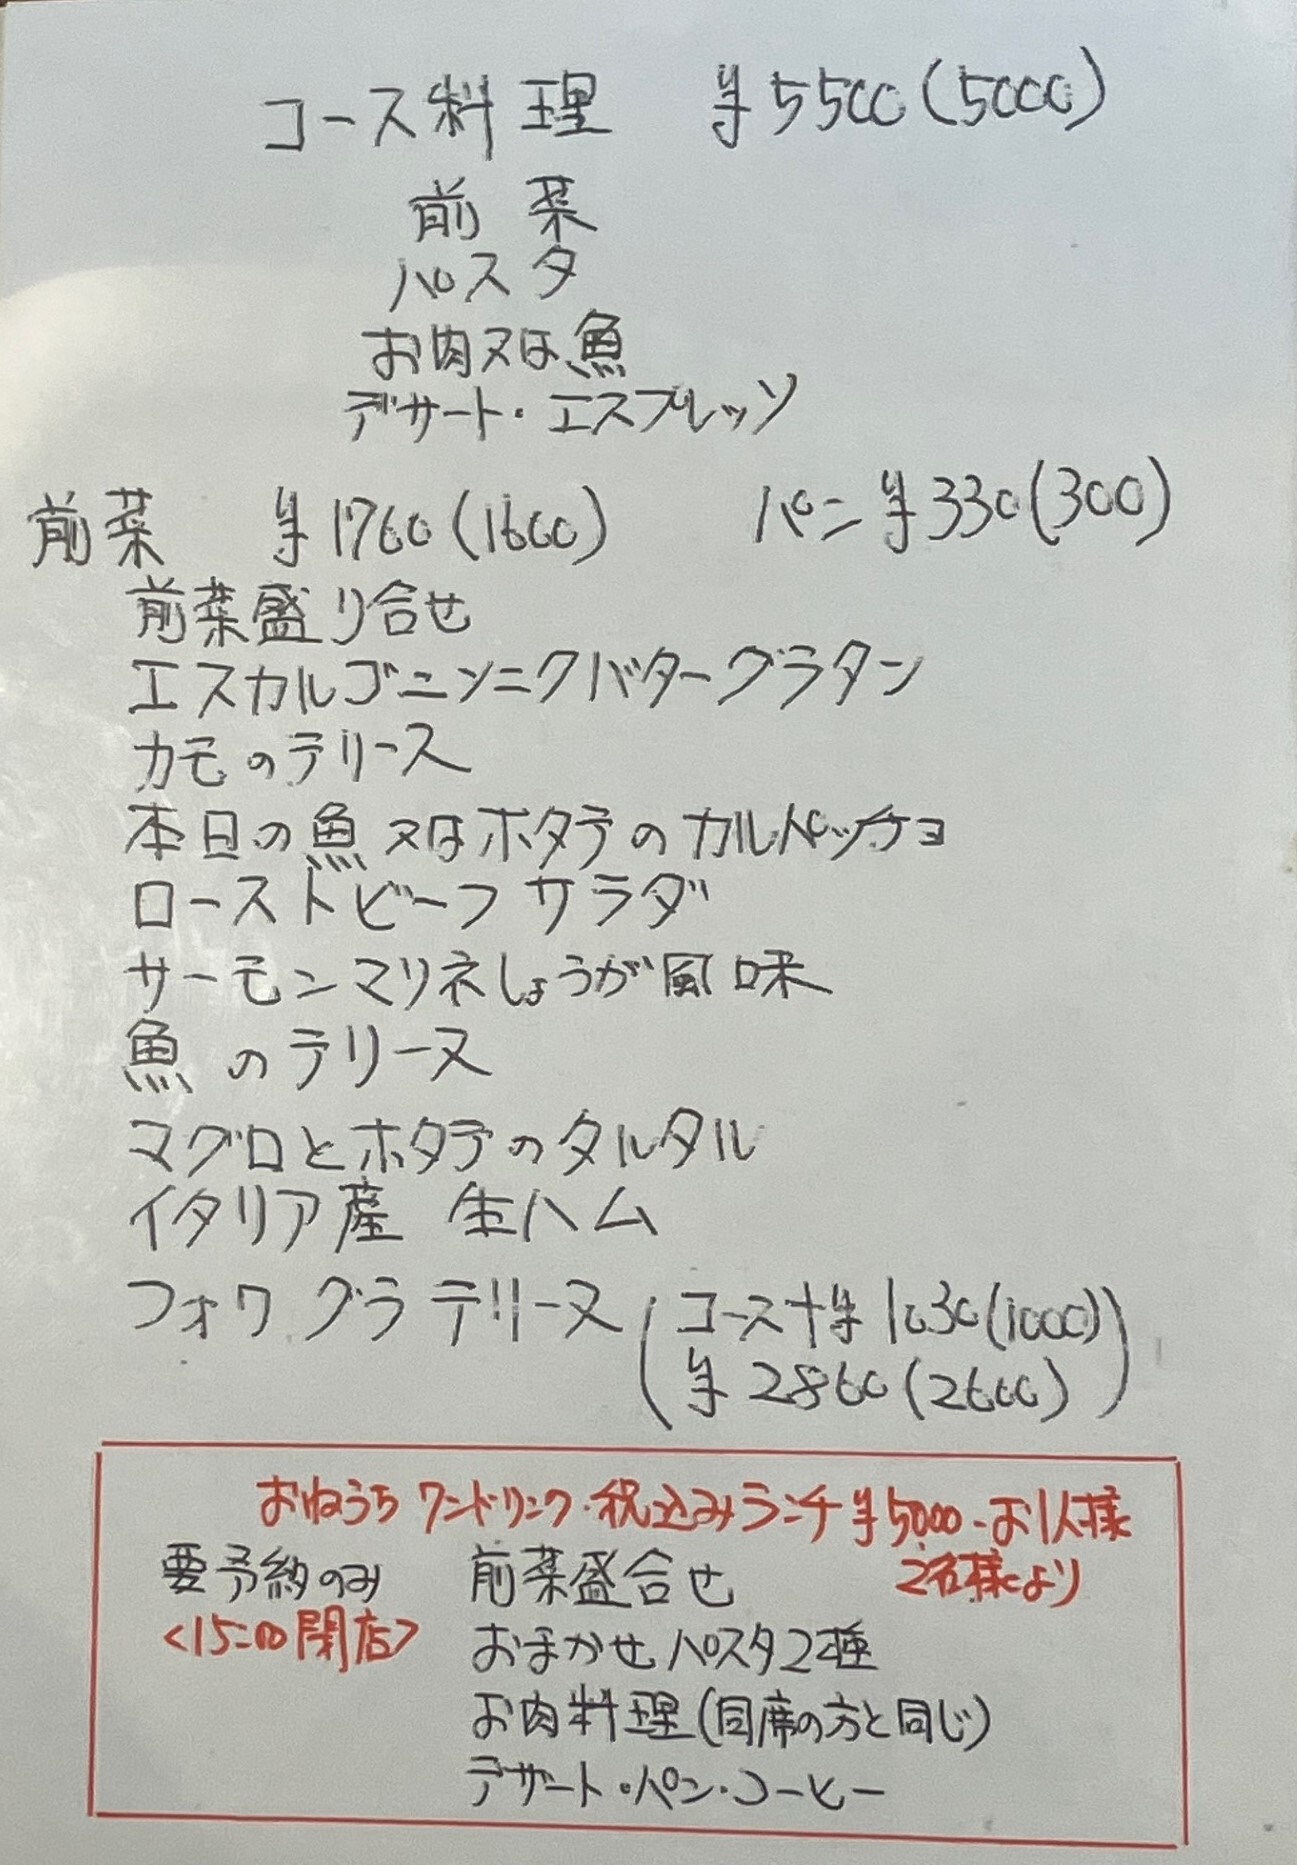 コース料理 ¥5500(5000)
前菜
パスタ
お肉又は魚
デザート・エスプレッソ
前菜 ¥1760(1600) パン ¥330(300)
前菜盛り合せ
エスカルゴニンニクバターグラタン
カモのテリーヌ
本日の魚又はホタテのカルパッチョ
ローストビーフサラダ
サーモンマリネしょうが風味
魚のテリーヌ
マグロとホタテのタルタル
イタリア産 生ハム
フォワグラテリーヌ(コース+¥1030(1000))
¥2860(2600)
おねうちワンドリンク・税込みランチ¥5000-お1人様
要予約のみ 前菜盛合せ 2名様より
<15:00閉店> おまかせパスタ2種
お肉料理(同席の方と同じ)
デザート・パン・コーヒー